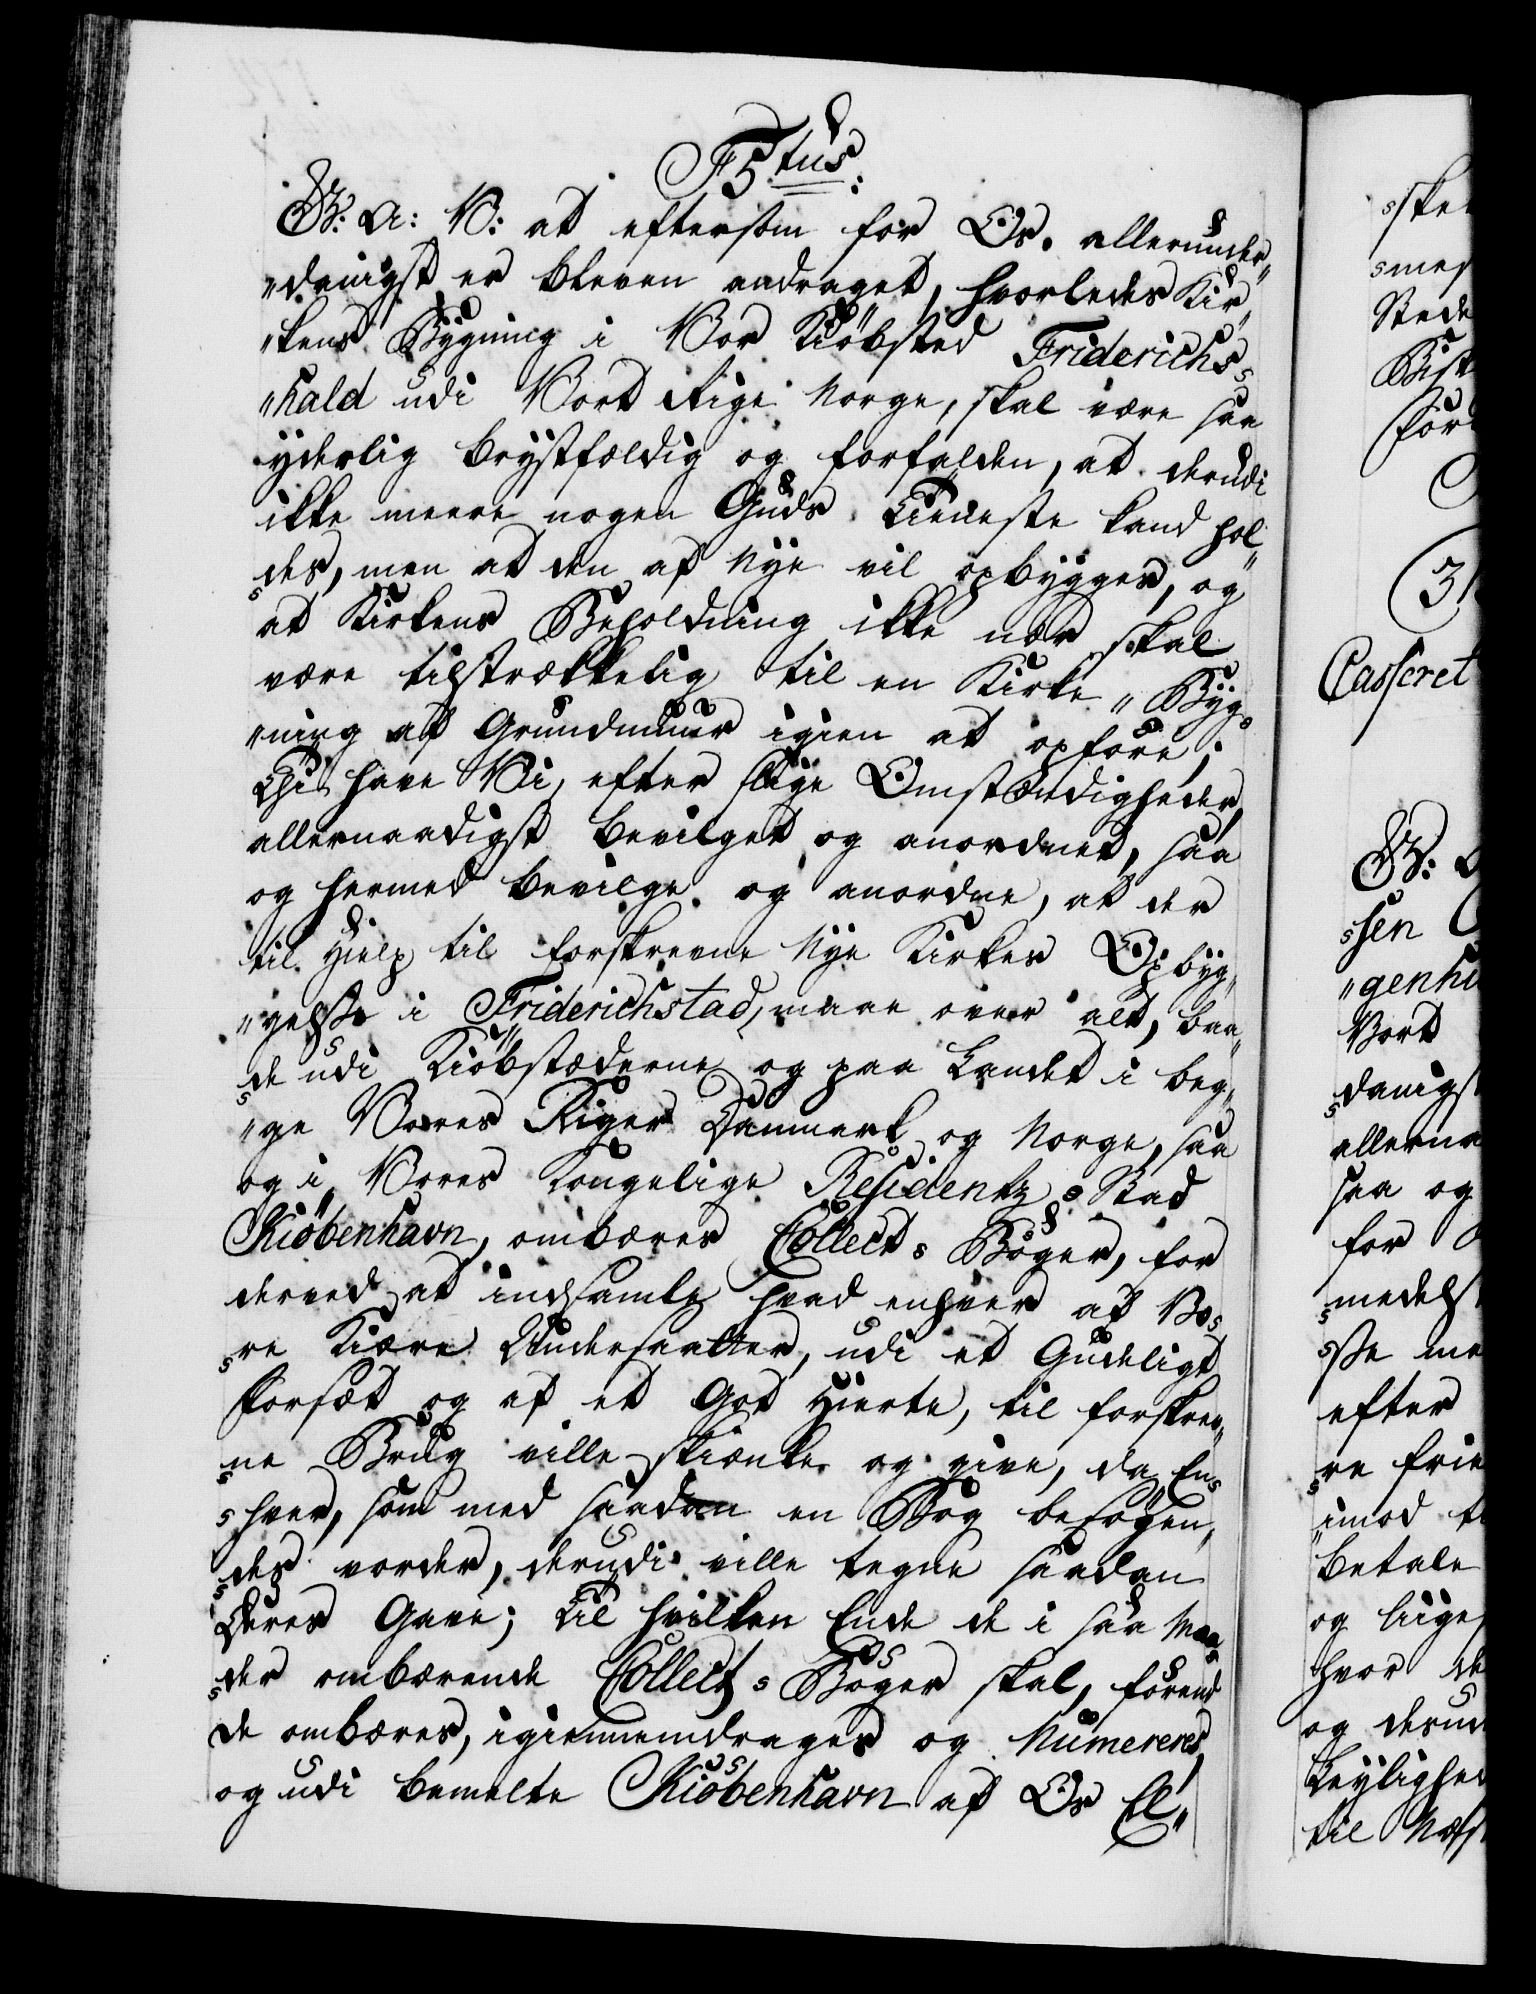 F5tus.
G: A: V: at eftersom for Os. allerunder„
„danigst er bleven andraget, hvorledes Kir„
„kens Bygning i Vor Kiöbsted Friderichs=
„hald udi Vort Rige Norge, skal være saa
yderlig brystfældig og forfalden, at derudi
ikke meere nogen Guds Tieneste kand hol„
=des, men at den af Nye vil opbygges, og
at Kirkens Beholdning ikke nær skal
være tilstrækkelig til en Kirke „ Byg=
„ning af Grundmuur igien at opføre;
Thi have Vi, efter slige Omstændigheder,
allernaadigst bevilget og anordnet, saa
og hermed bevilge og anordne, at der
til Hielp til forskrevne Nye Kirkes Opbyg„
„gelse i Friderichstad, maae over alt, baa„
=de udi Kiöbstæderne og paa Landet i beg„
„ge Vores Riger Danmark og Norge, saa
og i Vores Kongelige Residentz = Stad
Kiöbenhavn, ombæres Collect = Böger, for
derved at indsamle hvad enhver af Vo=
=re Kiære Undersaatter, udi et Gudeligt
Forsæt og af et God Hierte, til forskrev„
=ne Brug ville skiænke og give, da En=
=hver, som med saadan en Bog besøgen„
=des vorder, derudi ville tegne saadan
Deres Gave; Til hvilken Ende de i saa Maa=
=der ombærende Collect = Böger skal, førend
de ombæres, igiennemdrages og Numereres,
og udi bemelte Kiöbenhavn af Os El„
=sker
=mes
Stede
Bisk
for
31
Casseret
G: A
=sen
„genhu
Vort
=danigs
allerna
saa og
for
=medels
=sse me
efter
=re frie
imod t
betale
og liige
hvor de
og derud
Leylighed
til Næs